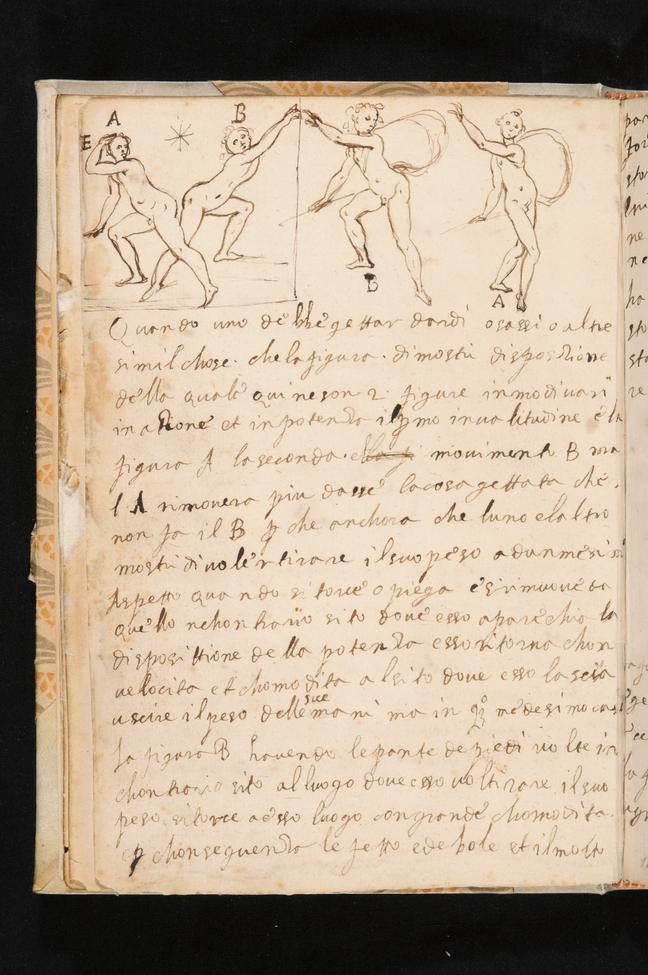 A
B
E
B
A
Quando uno debbe gettar dardi o sassi o altre
simil chose. che la figura. dimostri disposizione
della quale qui ne son 2 figure in modi vari
in azione et in potenzia il pmo in valitudine e la
figura A la seconda. movimento B ma
l A rimovera piu da sse la cosa gettata che.
non fa il B p che anchora che luno e laltro
mostri di voler tirare il suo peso a dun medesimo
Aspetto quando si torce o piega e si rimuove da
quello in chontrario sito dove esso aparechia la
disposittione della potenzia esso ritorna chon
velocita et chomodita al sito dove esso lascia
uscire il peso delle sue mani ma in qo medesimo
la figura B havendo le punte de piedi volte in
chontrario sito al luogo dove esso vol tirare il suo
peso si torce a esso luogo con grande chomodita.
et p chonseguenzia le fetto e debole et il moto